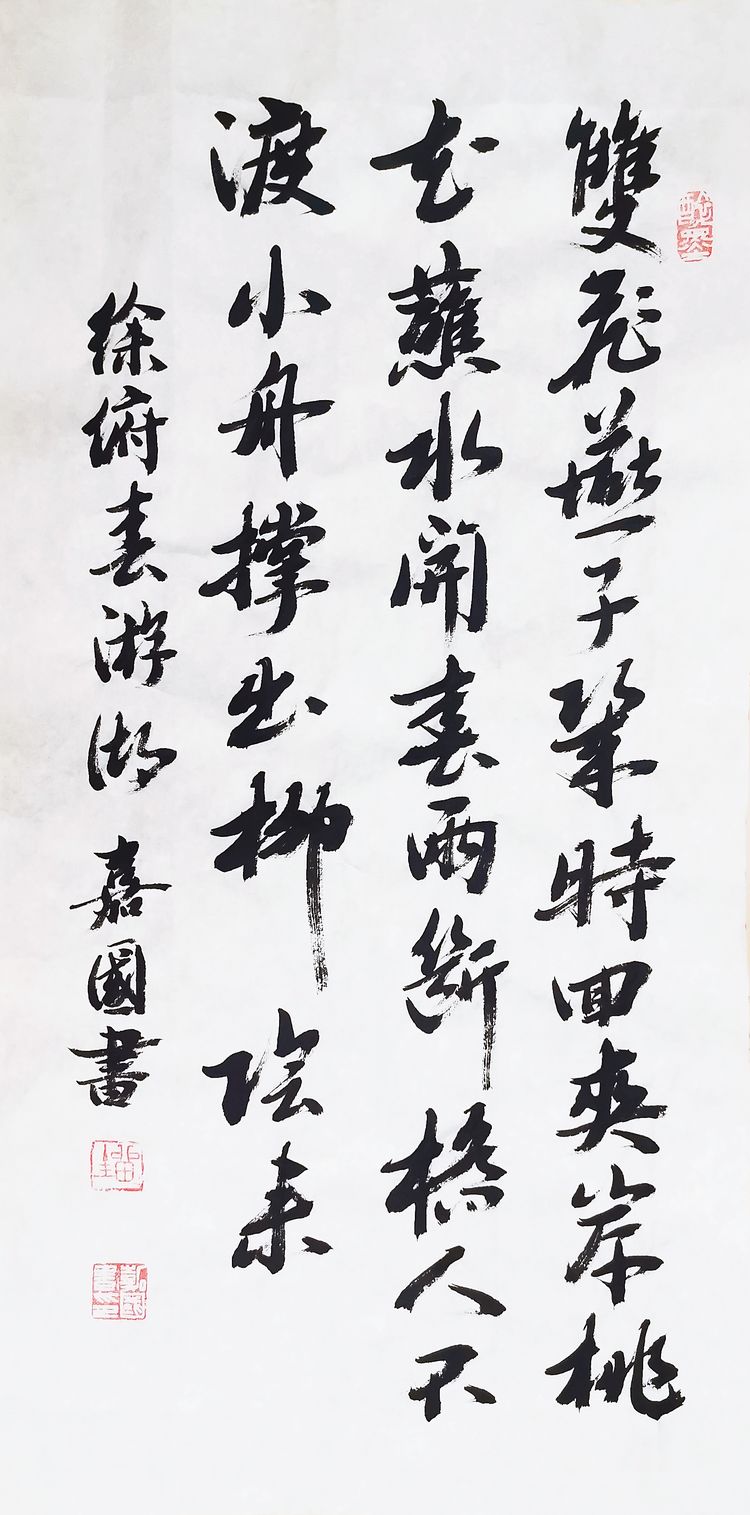 雙飛燕子幾時回夾岸桃
花蘸水開春雨斷橋人不
渡小舟撑出柳陰来
徐俯春游湖 嘉國書